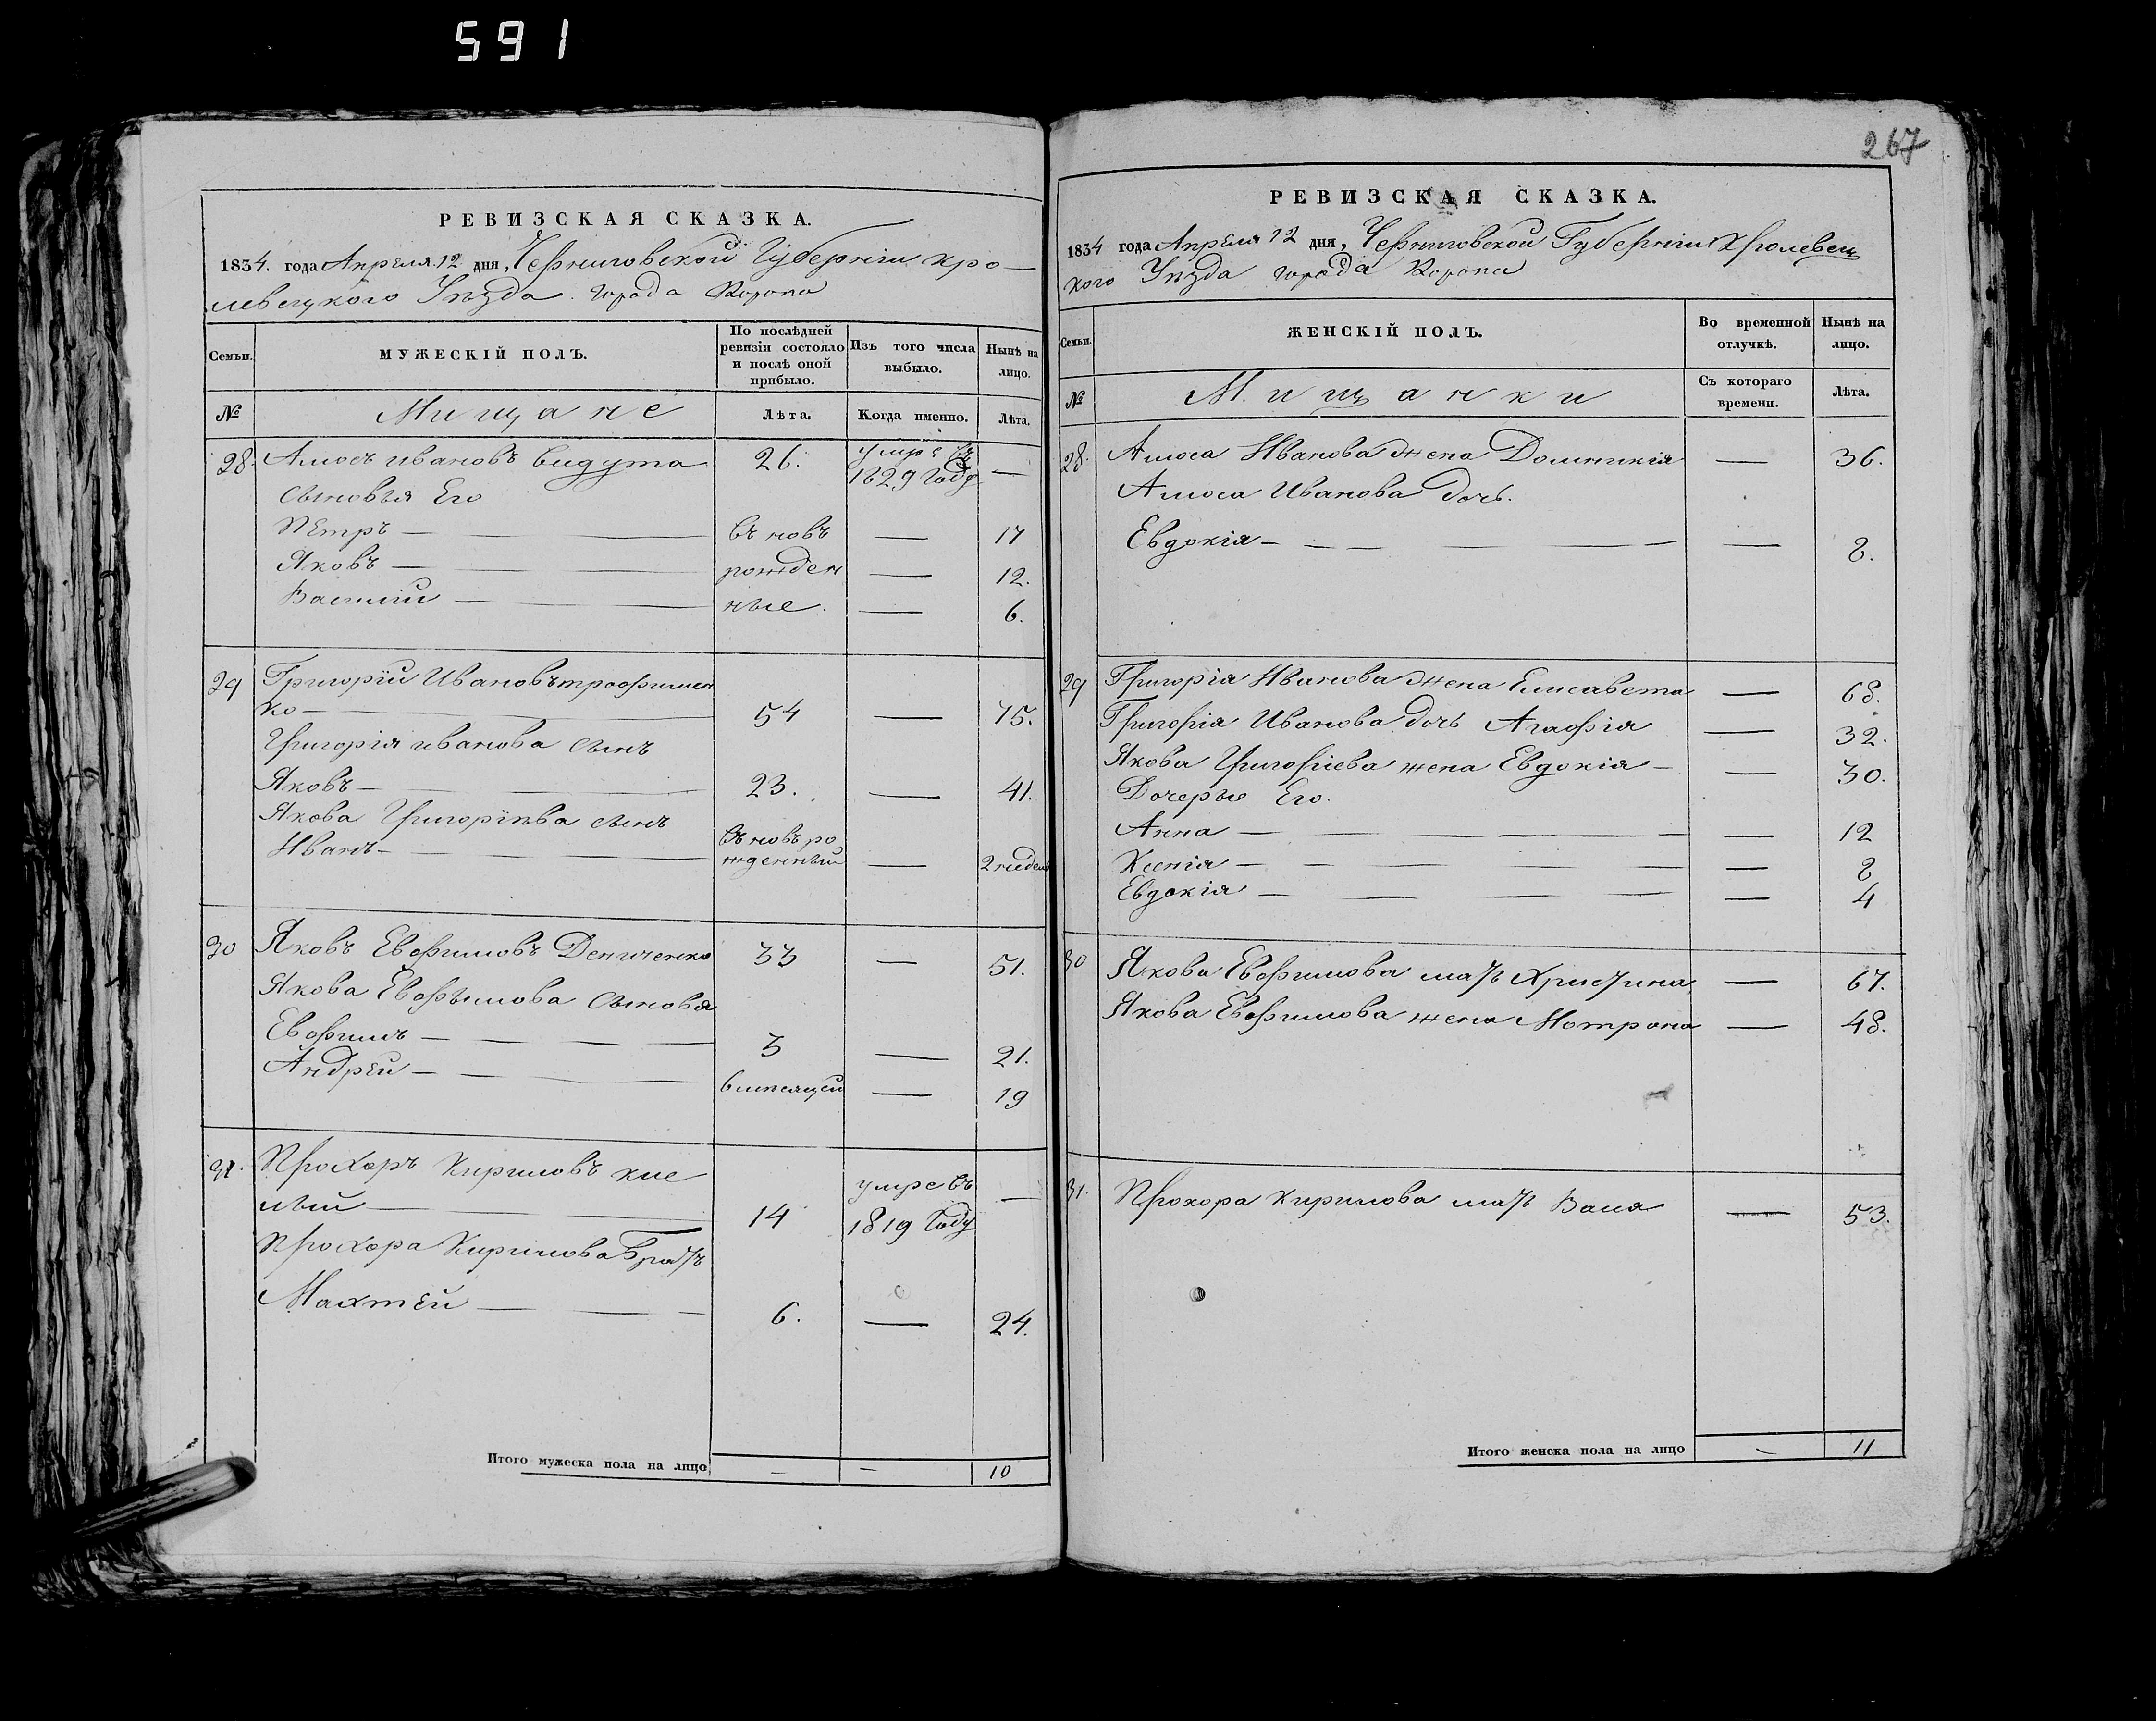 591
РЕВИЗСКАЯ СКАЗКА.
1834. года Апреля 12 дня, Черниговской Губернiи Кро-
левецкого Уѣзда города Коропа
Семьи.
МУЖЕСКІЙ ПОЛЪ.
По послѣдней
ревизіи состояло
и послѣ оной
прибыло.
Изъ того числа
выбыло.
Нынѣ на
лицо.
№
Мищане
Лѣта.
Когда именно.
Лѣта.
28. Амосъ Ивановъ Видута 26. умре въ —
1829 Году
Сыновья Его
Петръ — въ новъ — 17
Яковъ — рожден — 12.
Василий — ные. — 6.
29 Григорій Ивановъ трофимен
ко — 54 — 75.
Григорія Иванова сынъ
Яковъ — 23. — 41.
Якова Григоріѣва сынъ
Иванъ — въ новъ ро
жденный — 2 недели
30 Яковъ Евфимовъ Дениченко 33 — 51.
Якова Евфимова сыновя
Евфимъ — 3 — 21.
Андрей — вмпсящей — 19
31. Прохоръ Кириловъ кис
лый — 14 умре въ —
1819 Году
Прохора Кирилова Братъ
Махтей — 6. — 24.
Итого мужеска пола на лицо — — 10
267
РЕВИЗСКАЯ СКАЗКА.
1834 года Апреля 12 дня, Черниговской Губернiи Кролевец
кого Уѣзда города Коропа
Семьи.
ЖЕНСКІЙ ПОЛЪ.
Во временной
отлучкѣ.
Нынѣ на
лицо.
№
Мищанки
Съ котораго
времени.
Лѣта.
28. Амоса Иванова жена Домникія — 36.
Амоса Иванова дочь.
Евдокія — — 8.
29 Григорія Иванова жена Елисавета — 68.
Григорія Иванова дочь Агафія — 32.
Якова Григоріева жена Евдокія — — 30.
Дочерые Его.
Анна — — 12
Ксенія — — 8
Евдокія — — 4
30 Якова Евфимова мать Христина — 67.
Якова Евфимова жена Мотрона — 48.
31. Прохора Кирилова мать Васа — 53.
Итого женска пола на лицо — 11